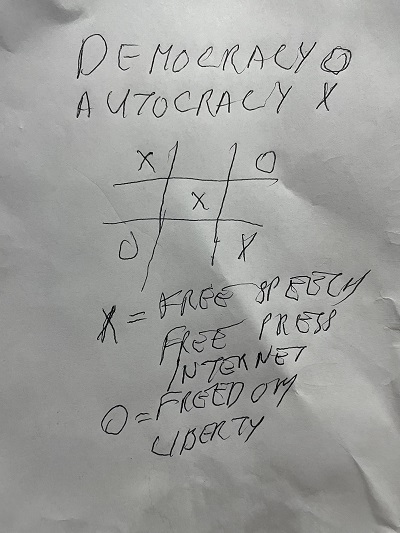 DEMOCRACY O
AUTOCRACY X
X O
X
O X
X = FREE SPEECH
FREE PRESS
INTERNET
O = FREEDOM
LIBERTY